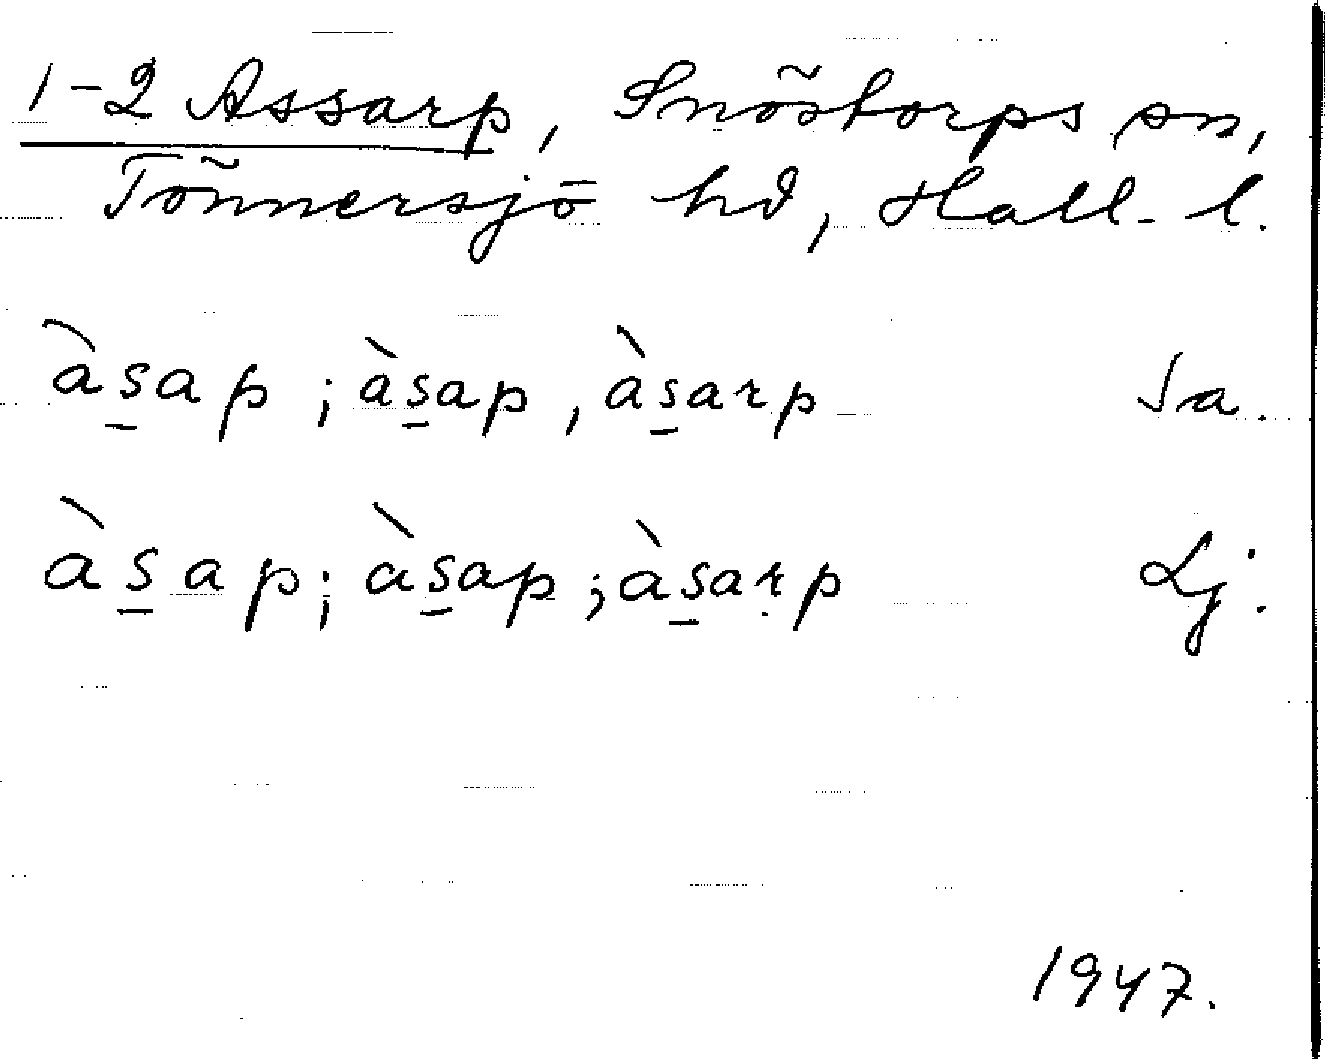 1-2 Assarp, Snöstorps sn,
Tönnersjö hd, Hall. l.
às̱ap ; às̱ap , às̱arp Sa.
às̱ap ; às̱ap ; às̱arp Lj.
1947.